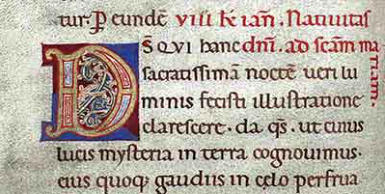 tur. P eundē viiii k̄ ian̄. Natiuitas
DS̄ QVI hanc dn̄i. ad sc̄am ma
sacratissimā noctē ueri lu riam.
minis fecisti illustratione
clarescere. da qs̄. ut cuius
lucis mysteria in terra cognouimus.
eius quoq; gaudiis in celo perfrua